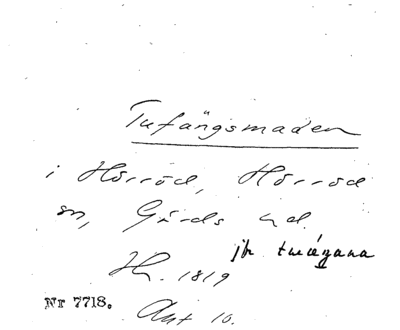 Tufängsmaden
i Hörröd, Hörröd
sn, Gärds hd.
jfr
H. 1819
Nr 7718.
Akt 10.